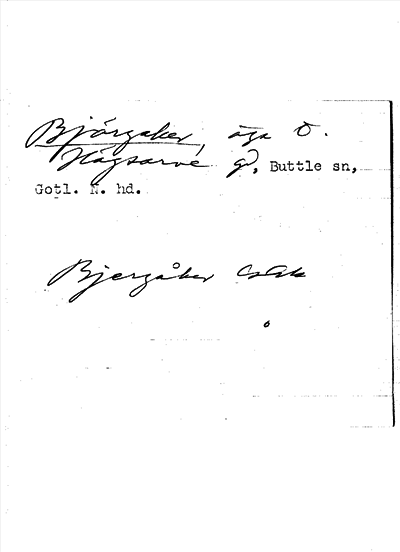 Björgaker, äga t.
Hägsarve gd, Buttle sn,
Gotl. N. hd.
Bjergåker